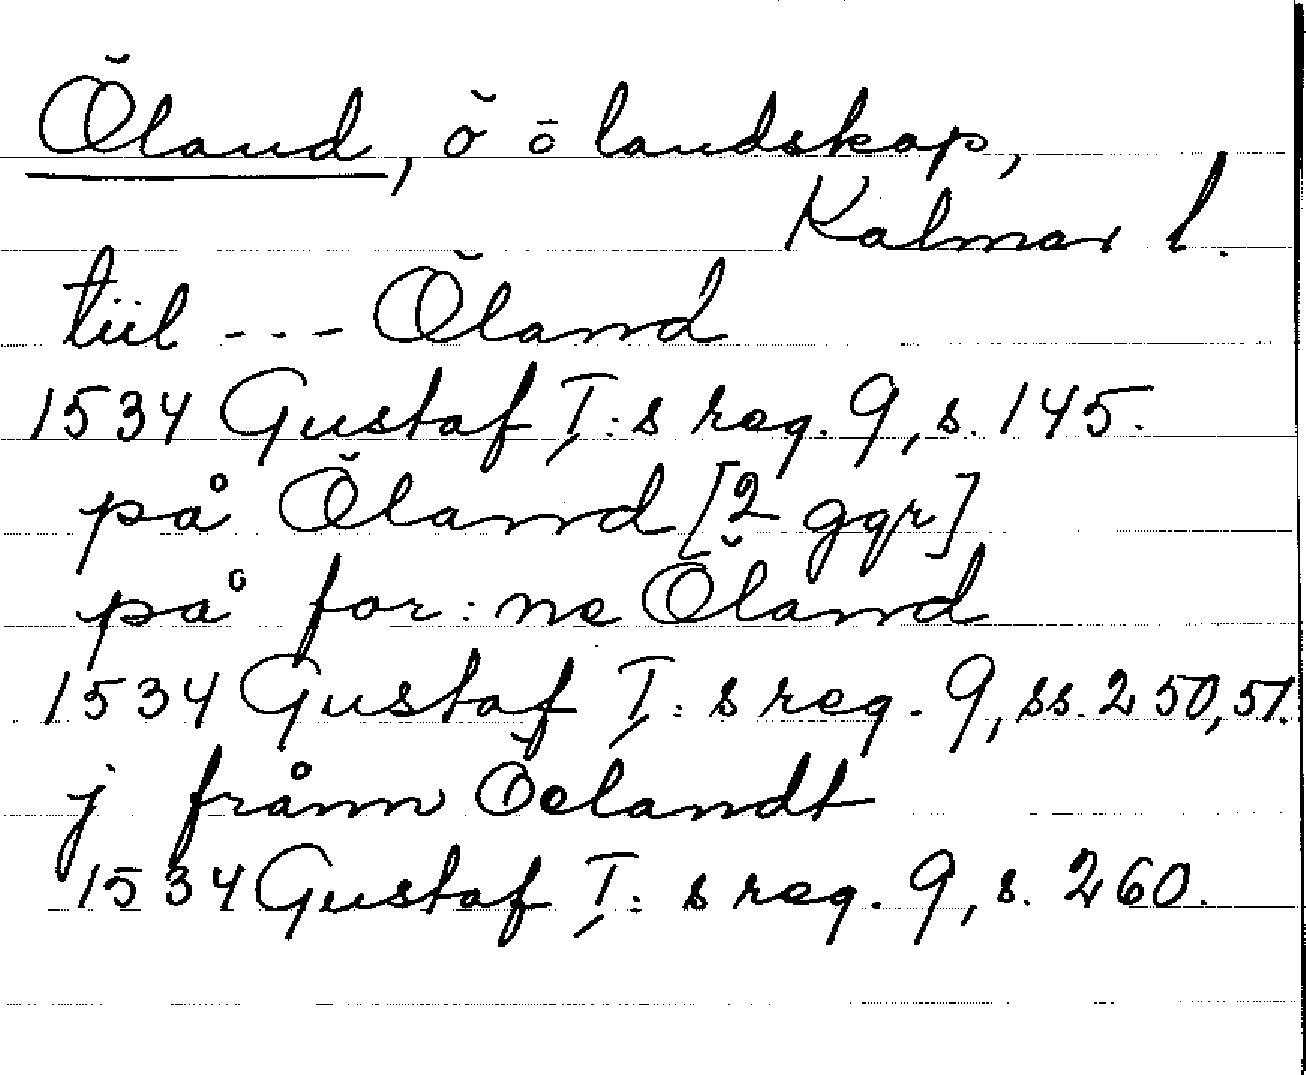 Öland, ö ō landskap,
Kalmar l.
tiil --- Öland
1534 Gustaf I:s reg. 9, s. 145.
på Öland [2 ggr]
på for:ne Öland
1534 Gustaf I:s reg. 9, ss. 250, 51.
j frånn Öelandt
1534 Gustaf I:s reg. 9, s. 260.